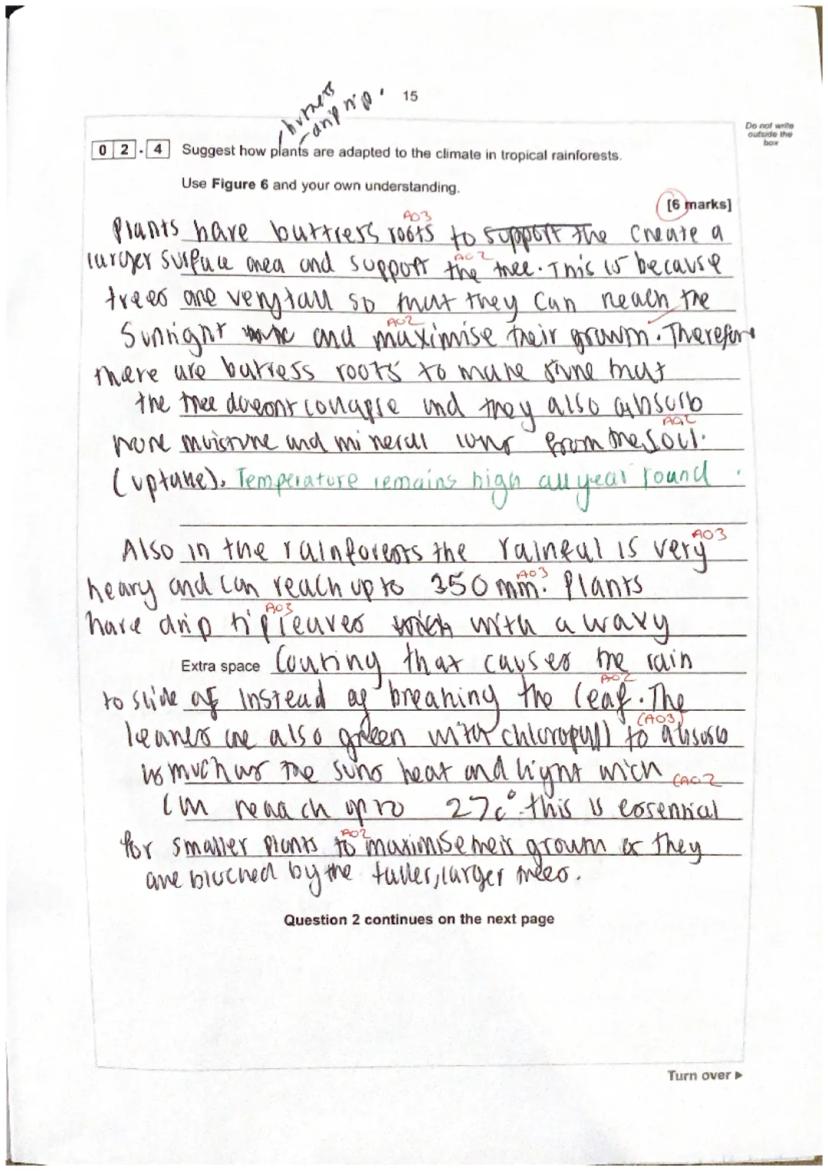 15
butress
drip tip.
Do not write
outside the
box
0 2 . 4 Suggest how plants are adapted to the climate in tropical rainforests.
Use Figure 6 and your own understanding.
[6 marks]
Plants have buttress roots to support the create a
AO3
larger surface area and support the tree. This is because
AO2
trees are very tall so that they can reach the
Sunlight and maximise their growth. Therefore
AO2
there are butress roots to make sure that
the tree doesnt collapse and they also absorb
more moisture and mineral ions from the soil.
AO2
(uptake). Temperature remains high all year round .
Also in the rainforests the rainfal is very
AO3
heavy and can reach up to 350 mm. Plants
AO3
have drip tip leaves which with a waxy
AO3
Extra space Coating that causes the rain
to slide of instead of breaking the leaf. The
AO2
leaves are also green with chloropyll to absorb
(AO3)
as much as the suns heat and light wich
(AO2
can reach up to 27c°. this is essential
for smaller plants to maximise their growth as they
AO2
are blocked by the taller, larger trees.
Question 2 continues on the next page
Turn over ►